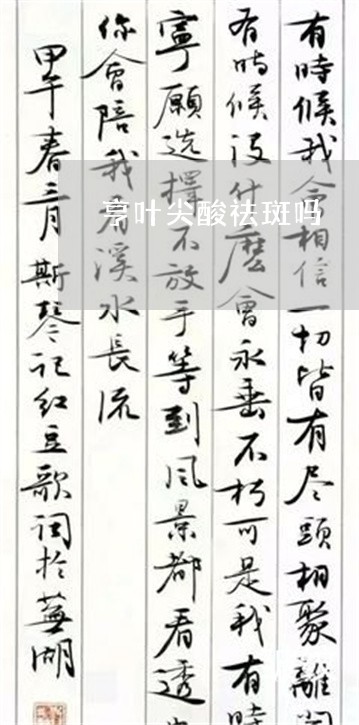 有時候我會相信一切皆有尽頭相聚離
有時候没什麽會永垂不朽可是我有時
寧願选擇不放手等到风景都看透
你會陪我看溪水長流
甲午春三月斯琴记红豆歌词於蕪湖
亨叶尖酸祛斑吗